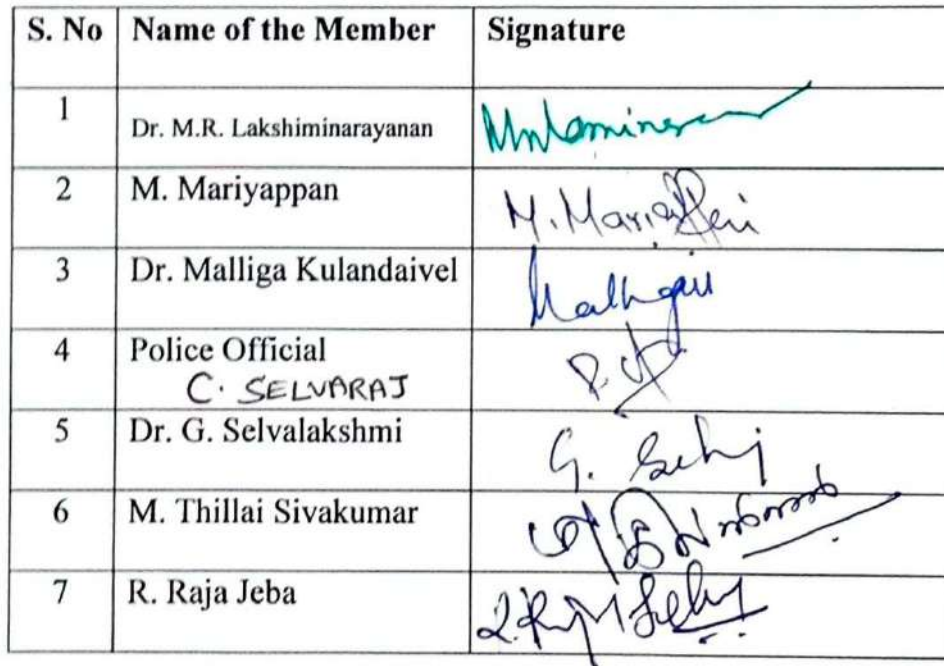 S. No Name of the Member Signature
1 Dr. M.R. Lakshiminarayanan
2 M. Mariyappan
3 Dr. Malliga Kulandaivel
4 Police Official
C. SELVARAJ
5 Dr. G. Selvalakshmi G.
6 M. Thillai Sivakumar
7 R. Raja Jeba